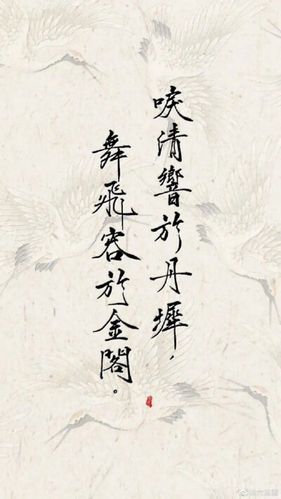 唳清響於丹墀，
舞飛容於金閣。